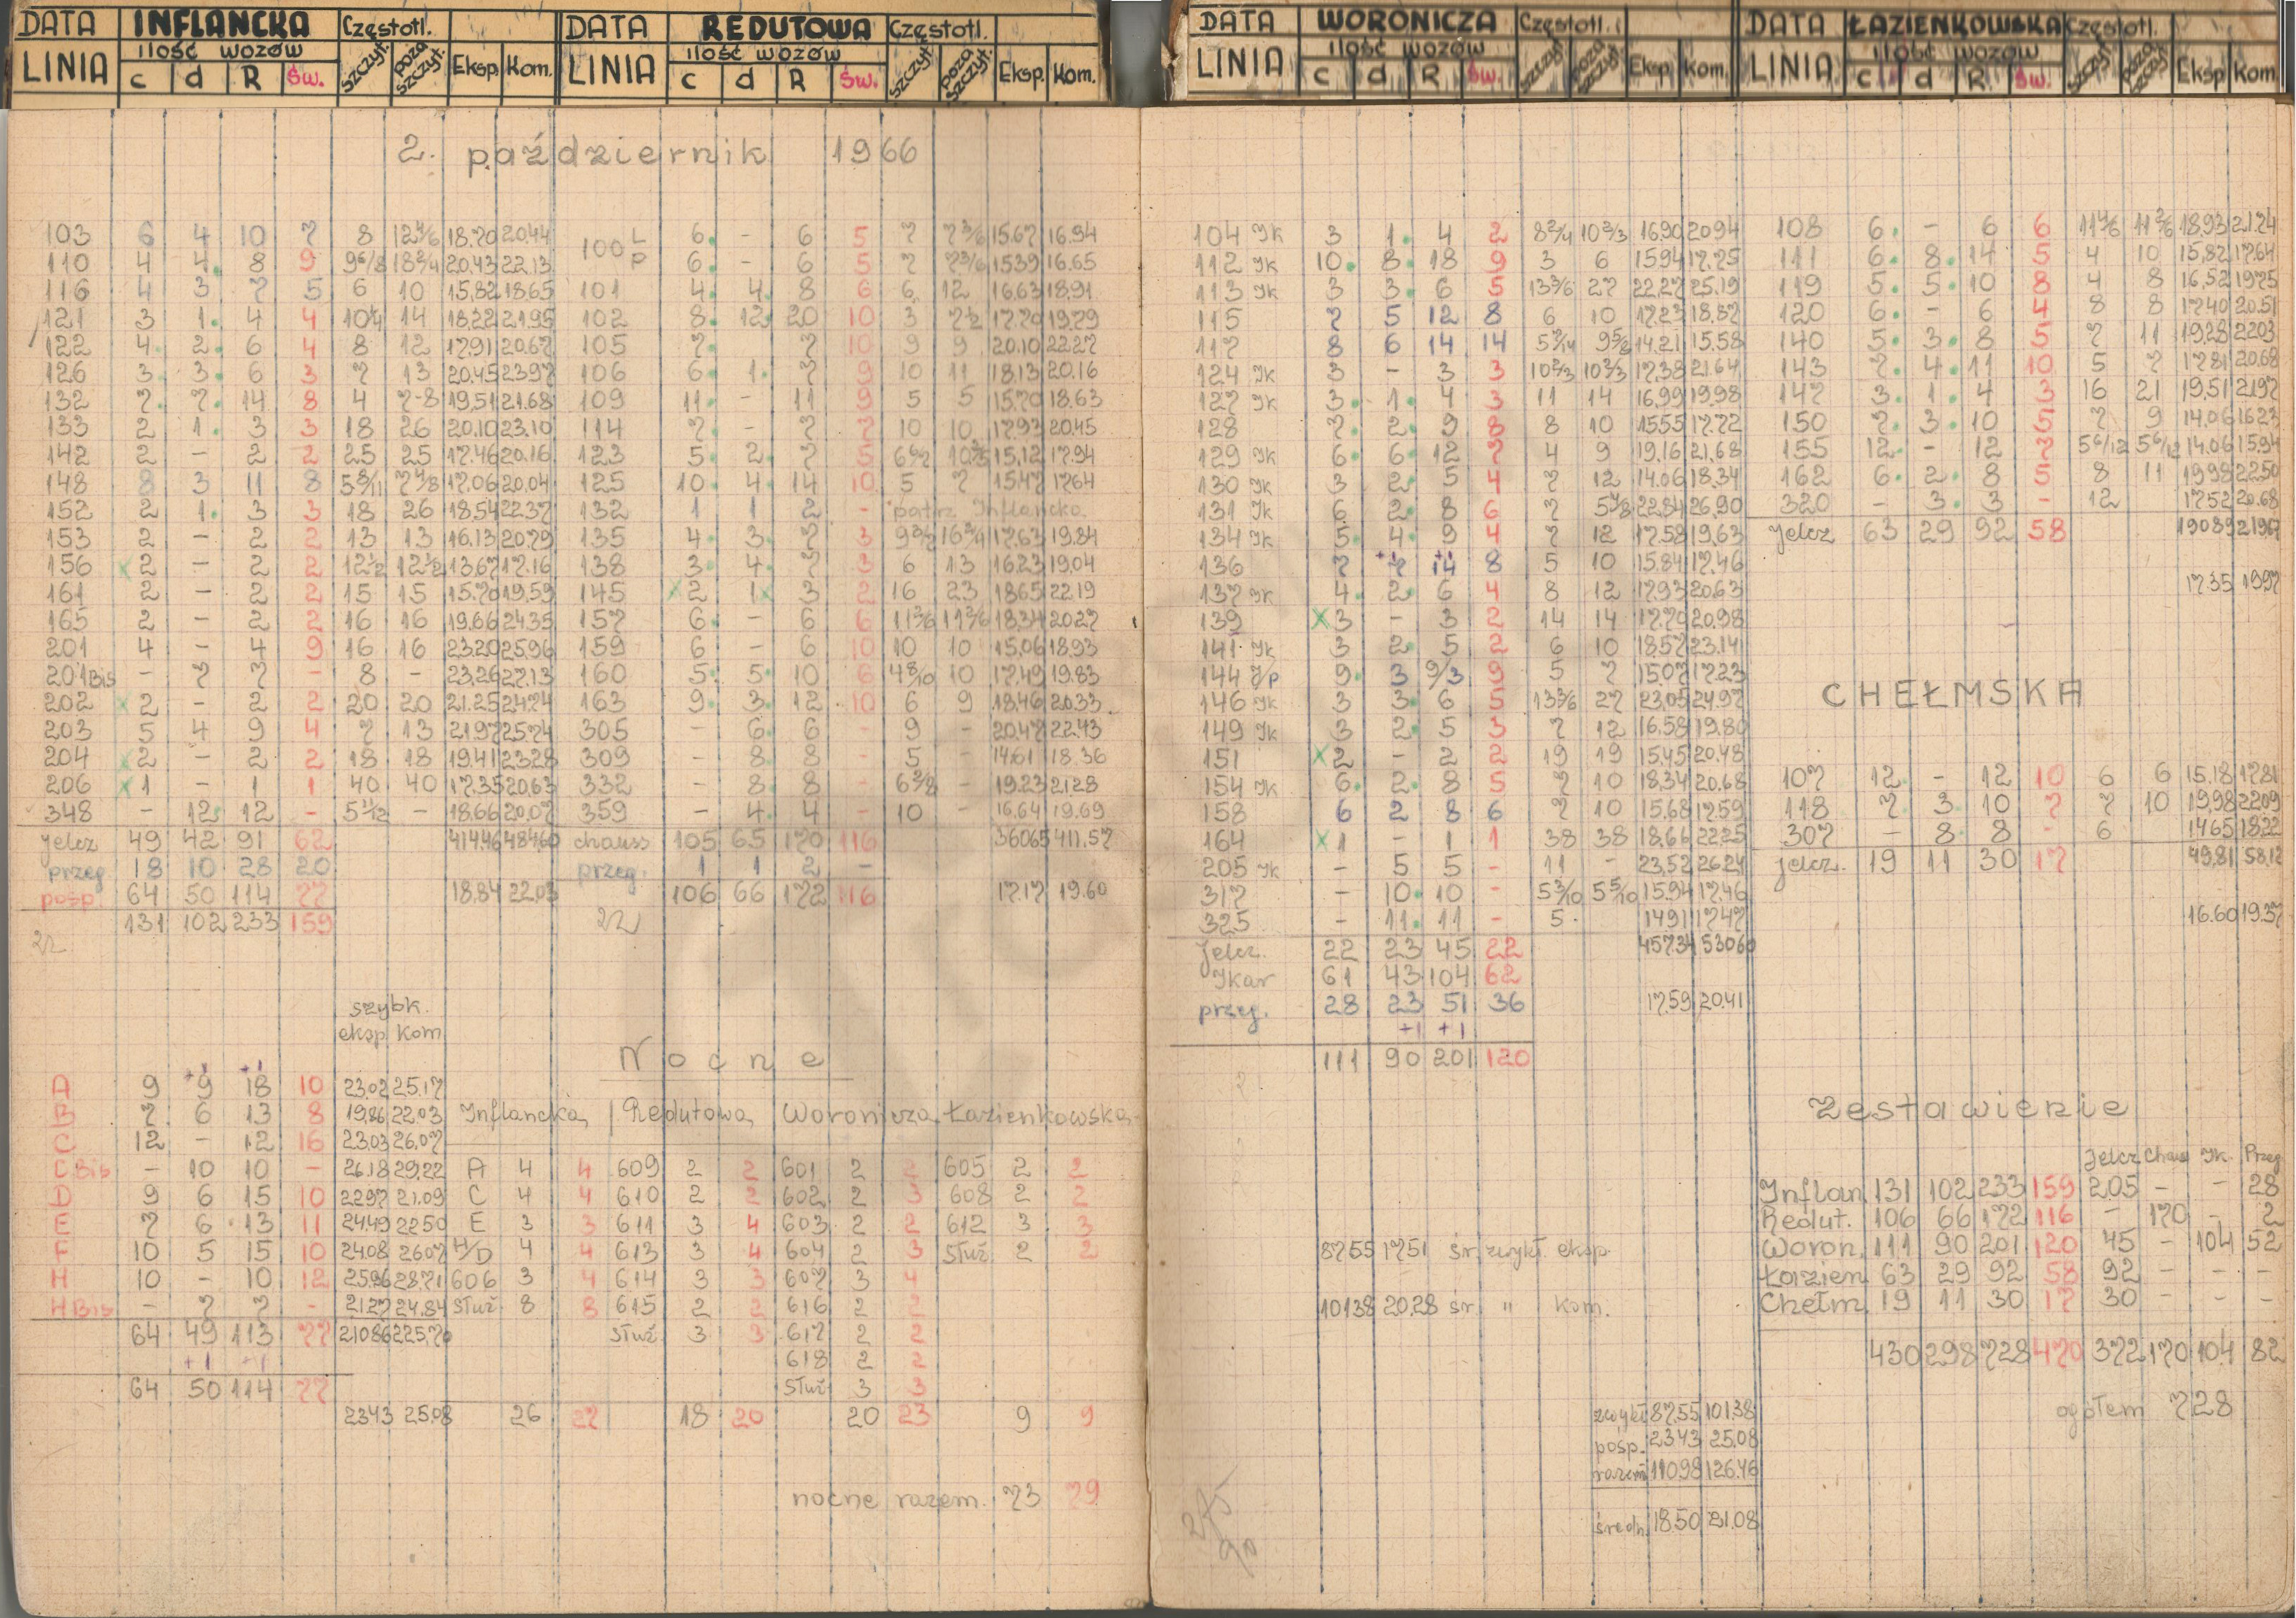 DATA INFLANCKA Częstotl.
LINIA ilość wozów c d R Św. szczyt. poza szczyt. Eksp. Kom.
DATA REDUTOWA Częstotl.
LINIA ilość wozów c d R Św. szczyt. poza szczyt. Eksp. Kom.
DATA WORONICZA Częstotl.
LINIA ilość wozów c d R Św. szczyt. poza szczyt. Eksp. Kom.
DATA ŁAZIENKOWSKA Częstotl.
LINIA ilość wozów c d R Św. szczyt. poza szczyt. Eksp. Kom.
2. październik 1966
103 6 4 10 7 8 12 4/6 18.70 20.44
110 4 4 8 9 9 6/8 18 2/4 20.43 22.13
116 4 3 7 5 6 10 15,82 18.65
121 3 1 4 4 10 1/4 14 18.22 21.95
122 4 2 6 4 8 12 17.91 20.67
126 3 3 6 3 7 13 20.45 23.97
132 7 7 14 8 4 7-8 19.51 21.68
133 2 1 3 3 18 26 20.10 23.10
142 2 - 2 2 25 25 17.46 20.16
148 8 3 11 8 5 8/11 7 4/8 17.06 20.04
152 2 1 3 3 18 26 18.54 22.37
153 2 - 2 2 13 13 16.13 20.79
156 x 2 - 2 2 12 1/2 12 1/2 13.67 17.16
161 2 - 2 2 15 15 15.70 19.59
165 2 - 2 2 16 16 19.66 24.35
201 4 - 4 9 16 16 23.20 25.96
201 Bis - 7 7 - 8 - 23.26 27.13
202 x 2 - 2 2 20 20 21.25 24.74
203 5 4 9 4 7 13 21.97 25.74
204 x 2 - 2 2 18 18 19.41 23.28
206 x 1 - 1 1 40 40 17.35 20.63
348 - 12 12 - 5 1/12 - 18.66 20.07
jelcz 49 42 91 62 414.46 484.60
przeg 18 10 28 20
pośp. 64 50 114 77 18.84 22.03
131 102 233 159
100 L 6 - 6 5 7 7 3/6 15.67 16.94
P 6 - 6 5 7 7 3/6 15.39 16.65
101 4 4 8 6 6 12 16.63 18.91
102 8 12 20 10 3 7 1/2 17.70 19.79
105 7 7 10 9 9 20.10 22.27
106 6 1 7 9 10 11 18.13 20.16
109 11 - 11 9 5 5 15.70 18.63
114 7 - 7 7 10 10 17.93 20.45
123 5 2 7 5 15.12 17.94
125 10 4 14 10 5 7 15.47 17.64
132 1 1 2 - patrz Inflancka
135 4 3 7 3 17.63 19.84
138 3 4 7 3 6 13 16.23 19.04
145 x 2 1 x 3 2 16 23 18.65 22.19
157 6 - 6 6 11 3/6 11 3/6 18.34 20.27
159 6 - 6 10 10 10 15.06 18.93
160 5 5 10 6 4 8/10 10 17.49 19.83
163 9 3 12 10 6 9 18.46 20.33
305 - 6 6 - 9 - 20.47 22.43
309 - 8 8 - 5 - 14.61 18.36
332 - 8 8 - 6 2/8 - 19.23 21.28
359 - 4 4 - 10 - 16.64 19.69
chauss 105 65 170 116 360.65 411.57
przeg. 1 1 2 -
106 66 172 116 17.17 19.60
104 Ik 3 1 4 2 8 2/4 10 2/3 16.90 20.94
112 Ik 10 8 18 9 3 6 15.94 17.75
113 Ik 3 3 6 5 13 3/6 27 22.27 25.19
115 7 5 12 8 6 10 17.23 18.87
117 8 6 14 14 14.21 15.58
124 Ik 3 - 3 3 10 2/3 10 2/3 17.38 21.64
127 Ik 3 1 4 3 11 14 16.99 19.98
128 7 2 9 8 8 10 15.55 17.72
129 Ik 6 6 12 7 4 9 19.16 21.68
130 Ik 3 2 5 4 7 12 14.06 18.34
131 Ik 6 2 8 6 7 5 4/8 22.84 26.90
134 Ik 5 4 9 4 7 12 17.59 19.63
136 7 +1 7 +1 14 8 5 10 15.84 17.46
137 Ik 4 2 6 4 8 12 17.93 20.63
139 x 3 - 3 2 14 14 17.70 20.98
141 Ik 3 2 5 2 6 10 18.57 23.14
144 J/p 9 3 9/3 9 5 7 15.07 17.23
146 Ik 3 3 6 5 13 3/6 27 23.05 24.97
149 Ik 3 2 5 3 7 12 16.58 19.80
151 x 2 - 2 2 19 19 15.45 20.48
154 Ik 6 2 8 5 7 10 18.34 20.68
158 6 2 8 6 7 10 15.68 17.59
164 x 1 - 1 1 38 38 18.66 22.25
205 Ik - 5 5 - 11 - 23.52 26.24
317 - 10 10 - 5 3/10 5 5/10 15.94 17.46
325 - 11 11 - 5 14.91 17.47
jelcz. 22 23 45 22 457.34 530.60
Ikar 61 43 104 62
przeg. 28 23 51 36 17.59 20.41
+1 +1
111 90 201 120
108 6 - 6 6 11 4/6 11 3/6 18.93 21.24
111 6 8 14 5 4 10 15.82 17.64
119 5 5 10 8 4 8 16.52 19.75
120 6 - 6 4 8 8 17.40 20.51
140 5 3 8 5 7 11 19.28 22.03
143 7 4 11 10 5 7 17.81 20.68
147 3 1 4 3 16 21 19.51 21.97
150 7 3 10 5 7 9 14.06 16.23
155 12 - 12 7 5 6/12 5 6/12 14.06 15.94
162 6 2 8 5 8 11 19.98 22.50
320 - 3 3 - 12 17.52 20.68
jelcz 63 29 92 58 190.89 219.67
17.35 19.97
CHEŁMSKA
107 12 - 12 10 6 6 15.18 17.81
118 7 3 10 7 7 10 19.98 22.09
307 - 8 8 - 6 14.65 18.22
jelcz. 19 11 30 17 49.81 58.12
16.60 19.37
szybk.
eksp. kom.
A 9 +1 9 +1 18 10 23.02 25.17
B 7 6 13 8 19.86 22.03
C 12 - 12 16 23.03 26.07
C Bis - 10 10 - 26.18 29.22
D 9 6 15 10 22.97 21.09
E 7 6 13 11 24.49 22.50
F 10 5 15 10 24.08 26.07
H 10 - 10 12 25.96 28.71
H Bis - 7 7 - 21.27 24.84
64 49 113 77 210.86 225.70
+1 +1
64 50 114 77
23.43 25.08
Nocne
Inflancka Redutowa Woronicza Łazienkowska
A 4 4 609 2 2 601 2 2 605 2 2
C 4 4 610 2 2 602 2 3 608 2 2
E 3 3 611 3 4 603 2 2 612 3 3
H/D 4 4 613 3 4 604 2 3 Służ 2 2
606 3 4 614 3 3 607 3 4
Służ 8 8 615 2 2 616 2 2
Służ. 3 3 617 2 2
618 2 2
Służ 3 3
26 27 18 20 20 23 9 9
nocne razem. 73 79
875.5 17.51 śr. zwykł. eksp.
1013.8 20.28 śr. " kom.
zwykł 87.55 101.38
pośp. 23.43 25.08
razem 110.98 126.46
średn. 18.50 21.08
Zestawienie
Jelcz Chaus Ik. Przeg
Inflan. 131 102 233 159 205 - - 28
Redut. 106 66 172 116 - 170 - 2
Woron. 111 90 201 120 45 - 104 52
Łazien 63 29 92 58 92 - - -
Chełm. 19 11 30 17 30 - - -
430 298 728 470 372 170 104 82
ogółem 728